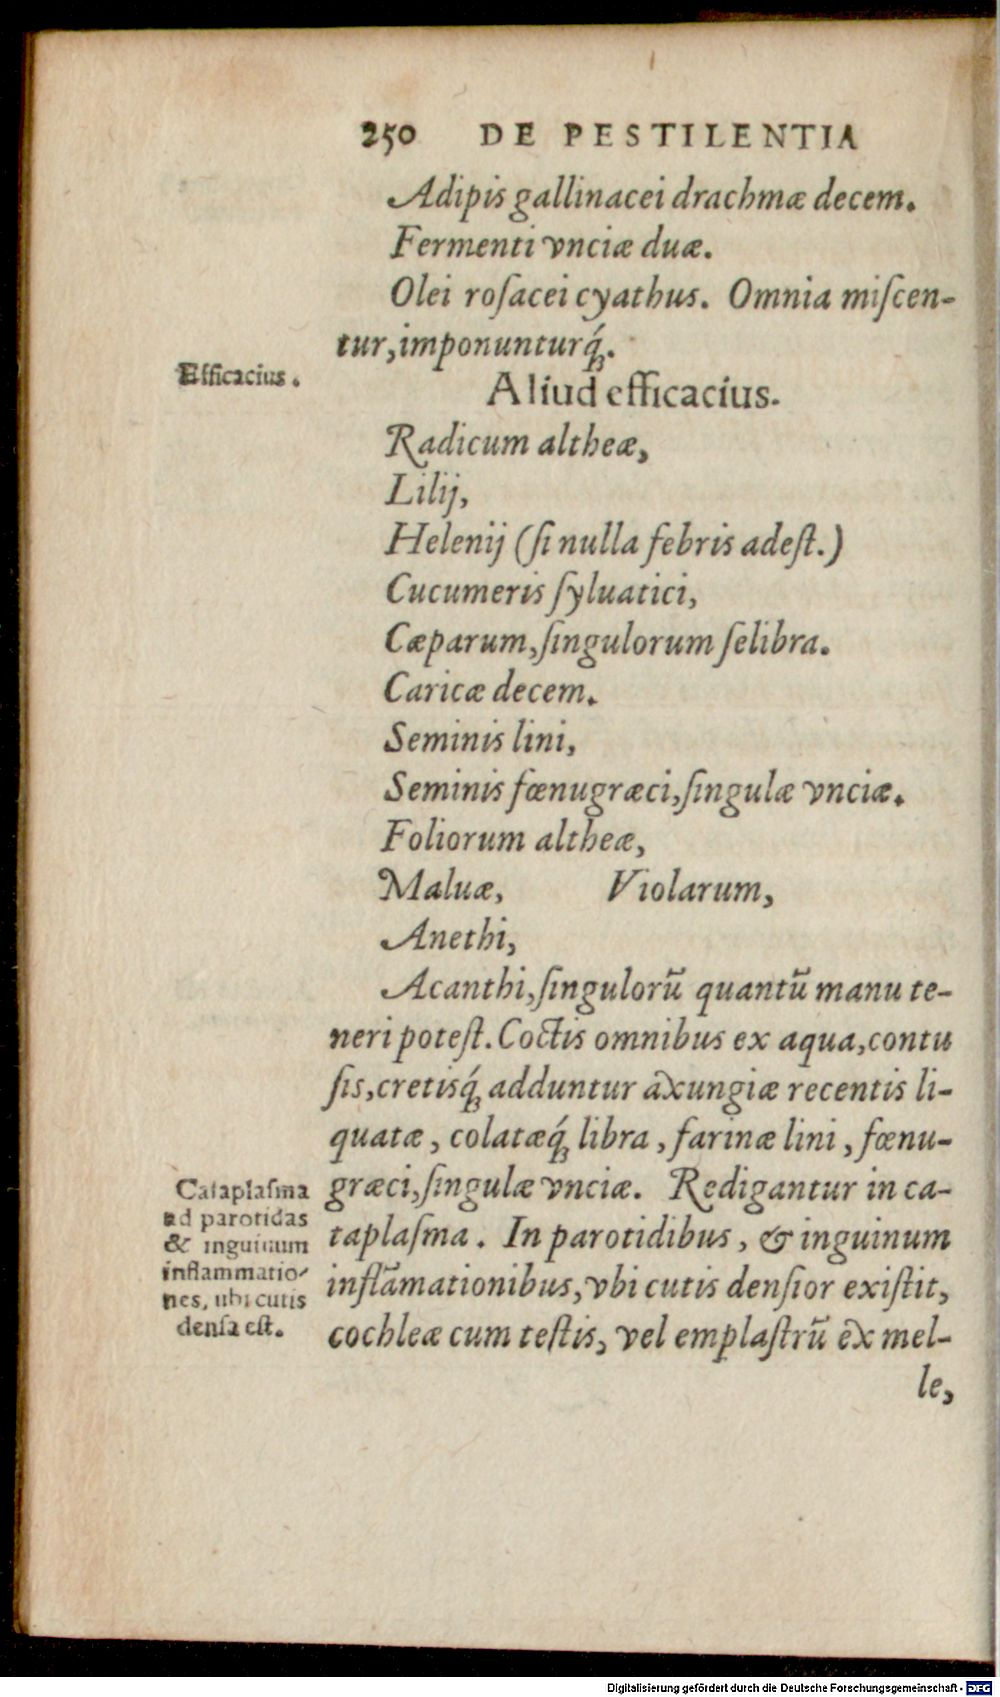 250 DE PESTILENTIA
Adipis gallinacei drachmæ decem.
Fermenti vnciæ duæ.
Olei roſacei cyathus. Omnia miſcen-
tur, imponunturq́;.
Efficacius.
Aliud efficacius.
Radicum altheæ,
Lilij,
Helenij (ſi nulla febris adeſt.)
Cucumeris ſyluatici,
Cæparum, ſingulorum ſelibra.
Caricæ decem.
Seminis lini,
Seminis fœnugræci, ſingulæ vnciæ.
Foliorum altheæ,
Maluæ, Violarum,
Anethi,
Acanthi, ſingulorū quantū manu te-
neri poteſt. Coctis omnibus ex aqua, contu
ſis, cretisq́; adduntur axungiæ recentis li-
quatæ, colatæq́; libra, farinæ lini, fœnu-
græci, ſingulæ vnciæ. Redigantur in ca-
taplaſma. In parotidibus, & inguinum
inflāmationibus, vbi cutis denſior exiſtit,
cochleæ cum teſtis, vel emplaſtrū ex mel-
le,
Cataplaſma
ad parotidas
& inguinum
inflammatio-
nes, ubi cutis
denſa eſt.
Digitalisierung gefördert durch die Deutsche Forschungsgemeinschaft - DFG